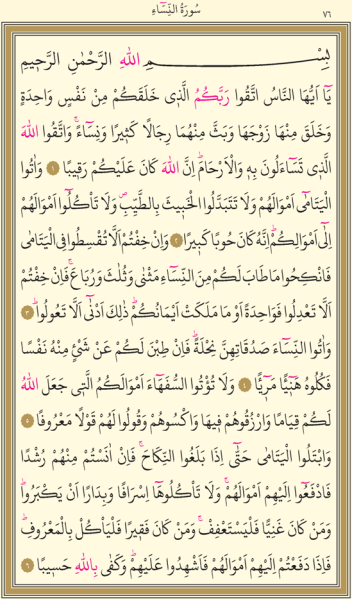 سُورَةُ النِّسَٓاءِ ٧٦
بِسْمِ اللهِ الرَّحْمٰنِ الرَّحٖيمِ
يَٓا اَيُّهَا النَّاسُ اتَّقُوا رَبَّكُمُ الَّذٖي خَلَقَكُمْ مِنْ نَفْسٍ وَاحِدَةٍ
وَخَلَقَ مِنْهَا زَوْجَهَا وَبَثَّ مِنْهُمَا رِجَالًا كَثٖيرًا وَنِسَٓاءًۚ وَاتَّقُوا اللهَ
الَّذٖي تَسَٓاءَلُونَ بِهٖ وَالْاَرْحَامَؕ اِنَّ اللهَ كَانَ عَلَيْكُمْ رَقٖيبًا ١ وَاٰتُوا
الْيَتَامٰٓى اَمْوَالَهُمْ وَلَا تَتَبَدَّلُوا الْخَبٖيثَ بِالطَّيِّبِࣕ وَلَا تَأْكُلُٓوا اَمْوَالَهُمْ
اِلٰٓى اَمْوَالِكُمْؕ اِنَّهُ كَانَ حُوبًا كَبٖيرًا ٢ وَاِنْ خِفْتُمْ اَلَّا تُقْسِطُوا فِي الْيَتَامٰى
فَانْكِحُوا مَا طَابَ لَكُمْ مِنَ النِّسَٓاءِ مَثْنٰى وَثُلٰثَ وَرُبَاعَۚ فَاِنْ خِفْتُمْ
اَلَّا تَعْدِلُوا فَوَاحِدَةً اَوْ مَا مَلَكَتْ اَيْمَانُكُمْؕ ذٰلِكَ اَدْنٰٓى اَلَّا تَعُولُواؕ ٣
وَاٰتُوا النِّسَٓاءَ صَدُقَاتِهِنَّ نِحْلَةًؕ فَاِنْ طِبْنَ لَكُمْ عَنْ شَيْءٍ مِنْهُ نَفْسًا
فَكُلُوهُ هَنٖٓيـًٔا مَرٖٓيـًٔا ٤ وَلَا تُؤْتُوا السُّفَهَٓاءَ اَمْوَالَكُمُ الَّتٖي جَعَلَ اللهُ
لَكُمْ قِيَامًا وَارْزُقُوهُمْ فٖيهَا وَاكْسُوهُمْ وَقُولُوا لَهُمْ قَوْلًا مَعْرُوفًا ٥
وَابْتَلُوا الْيَتَامٰى حَتّٰٓى اِذَا بَلَغُوا النِّكَاحَۚ فَاِنْ اٰنَسْتُمْ مِنْهُمْ رُشْدًا
فَادْفَعُٓوا اِلَيْهِمْ اَمْوَالَهُمْۚ وَلَا تَأْكُلُوهَٓا اِسْرَافًا وَبِدَارًا اَنْ يَكْبَرُواؕ
وَمَنْ كَانَ غَنِيًّا فَلْيَسْتَعْفِفْۚ وَمَنْ كَانَ فَقٖيرًا فَلْيَأْكُلْ بِالْمَعْرُوفِؕ
فَاِذَا دَفَعْتُمْ اِلَيْهِمْ اَمْوَالَهُمْ فَاَشْهِدُوا عَلَيْهِمْؕ وَكَفٰى بِاللهِ حَسٖيبًا ٦